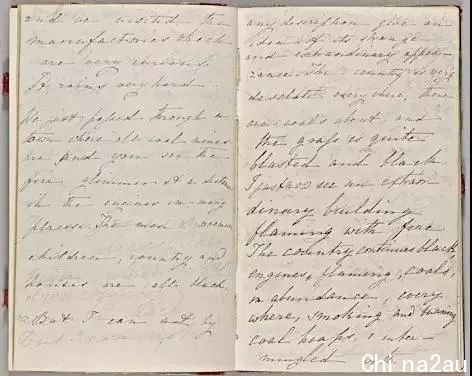 and we visited the
manufactories which
are very curious.
It rains very hard.
We just passed through a
town where all coal mines
are and you see the
fire glimmer at a distance
in the engines in many
places. The men, women,
children, country and
houses are all black.
But I can not by
any description give an
idea of its strange
and extraordinary appea-
rance. The country is very
desolate every where; there
are coals about, and
the grass is quite
blasted and black.
I just now see an extraor
dinary building
flaming with fire.
The country continues black,
engines, flaming, coals,
in abundance, every
where, smoking and burning
coal heaps, inter-
mingled with
Chi na2au